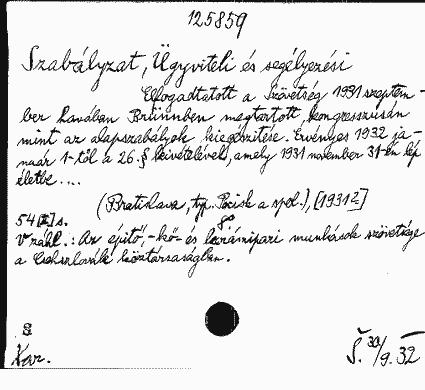 125859
Szabályzat, Ügyviteli és segélyezési
Elfogadtatott a Szövetség 1931 szeptem-
ber havában Brünnben megtartott kongresszusán
mint az alapszabályok kiegészítése. Érvényes 1932 ja-
nuár 1-től a 26. § kivételével, amely 1931 november 31-én lép
életbe....
(Bratislava, typ. Pocisk a spol.), [1931]
54 [2] s. 8°
V záhl.: Az építő-, kő- és kerámipari munkások szövetsége
a Csehszlovák köztársaságban.
8
Kar.
Š. 30/9. 32